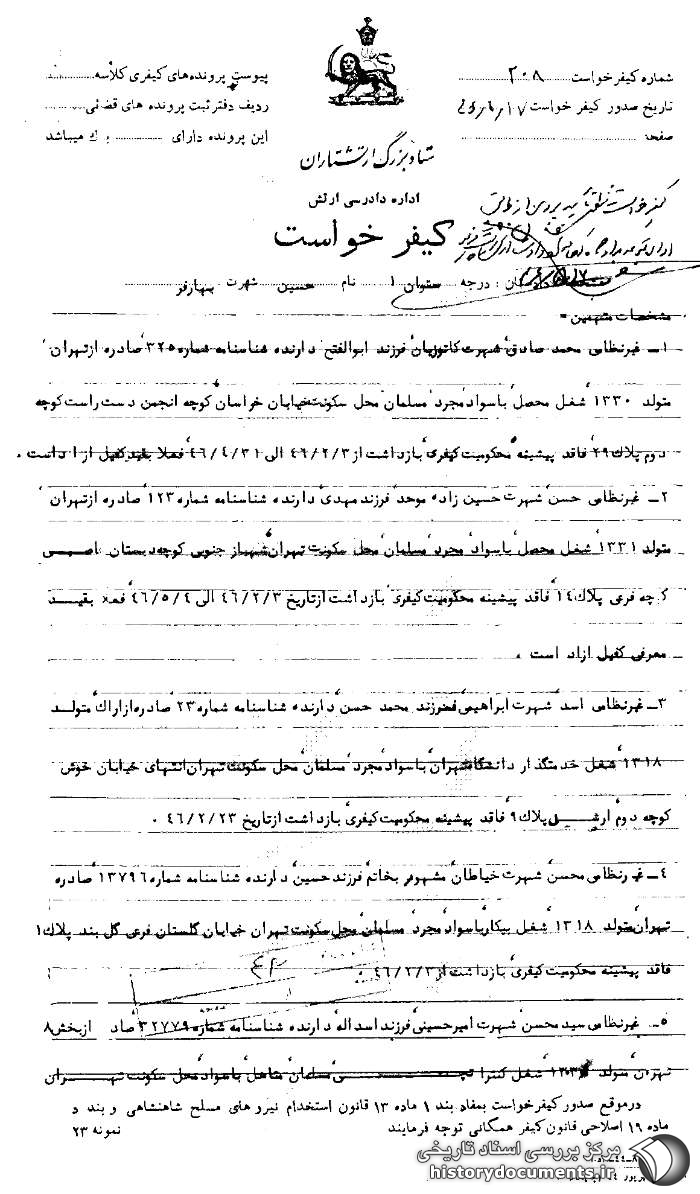 شماره کیفرخواست ۲۰۸
تاریخ صدور کیفر خواست
صفحه
پیوست پرونده‌های کیفری کلاسه
ردیف دفتر ثبت پرونده های قضائی
این پرونده دارای برگ میباشد
ستاد بزرگ ارتشتاران
اداره دادرسی ارتش
کیفر خواست
درجه ستوان ۱ نام حسین شهرت بهارفر
مشخصات متهمین -
۱ـ غیرنظامی محمد صادق شهرت کاتوزیان فرزند ابوالفتح دارنده شناسنامه شماره ۳۲۵ صادره از تهران
متولد ۱۳۳۰ شغل محصل باسواد مجرد مسلمان محل سکونت خیابان خراسان کوچه انجمن دست راست کوچه
دوم پلاک ۲۹ فاقد پیشینه محکومیت کیفری بازداشت از ۴۶/۲/۳ الی ۴۶/۴/۳۱ فعلا بقید کفیل ازاد است .
۲ـ غیرنظامی حسن شهرت حسین زاده موحد فرزند مهدی دارنده شناسنامه شماره ۱۲۳ صادره از تهران
متولد ۱۳۳۱ شغل محصل باسواد مجرد مسلمان محل سکونت تهران شهباز جنوبی کوچه دبستان
کوچه فری پلاک ۱۴ فاقد پیشینه محکومیت کیفری بازداشت از تاریخ ۴۶/۲/۳ الی ۴۶/۵/۴ فعلا بقید
معرفی کفیل ازاد است .
۳ـ غیرنظامی اسد شهرت ابراهیمی فرزند محمد حسن دارنده شناسنامه شماره ۲۳ صادره از اراک متولد
۱۳۱۸ شغل خدمتگذار دانشگاه تهران باسواد مجرد مسلمان محل سکونت تهران انتهای خیابان خوش
کوچه دوم پلاک ۹ فاقد پیشینه محکومیت کیفری بازداشت از تاریخ ۴۶/۲/۲۳ .
۴ـ غیرنظامی محسن شهرت خیاطان مشهور بخاتم فرزند حسین دارنده شناسنامه شماره ۱۳۷۹۶ صادره
تهران متولد ۱۳۱۸ شغل بیکار باسواد مجرد مسلمان محل سکونت تهران خیابان گلستان فرعی گل بند پلاک ۱
فاقد پیشینه محکومیت کیفری بازداشت از ۴۶/۲/۳ .
۵ـ غیرنظامی سید محسن شهرت امیرحسینی فرزند اسداله دارنده شناسنامه شماره ۳۲۷۷۹ صادره از بخش ۸
تهران متولد شغل مسلمان متاهل باسواد محل سکونت تهران
درموقع صدور کیفرخواست بمفاد بند ۱ ماده ۱۳ قانون استخدام نیروهای مسلح شاهنشاهی و بند د
ماده ۱۹ اصلاحی قانون کیفر همگانی توجه فرمایند
نمونه ۲۳
مرکز بررسی اسناد تاریخی
historydocuments.ir